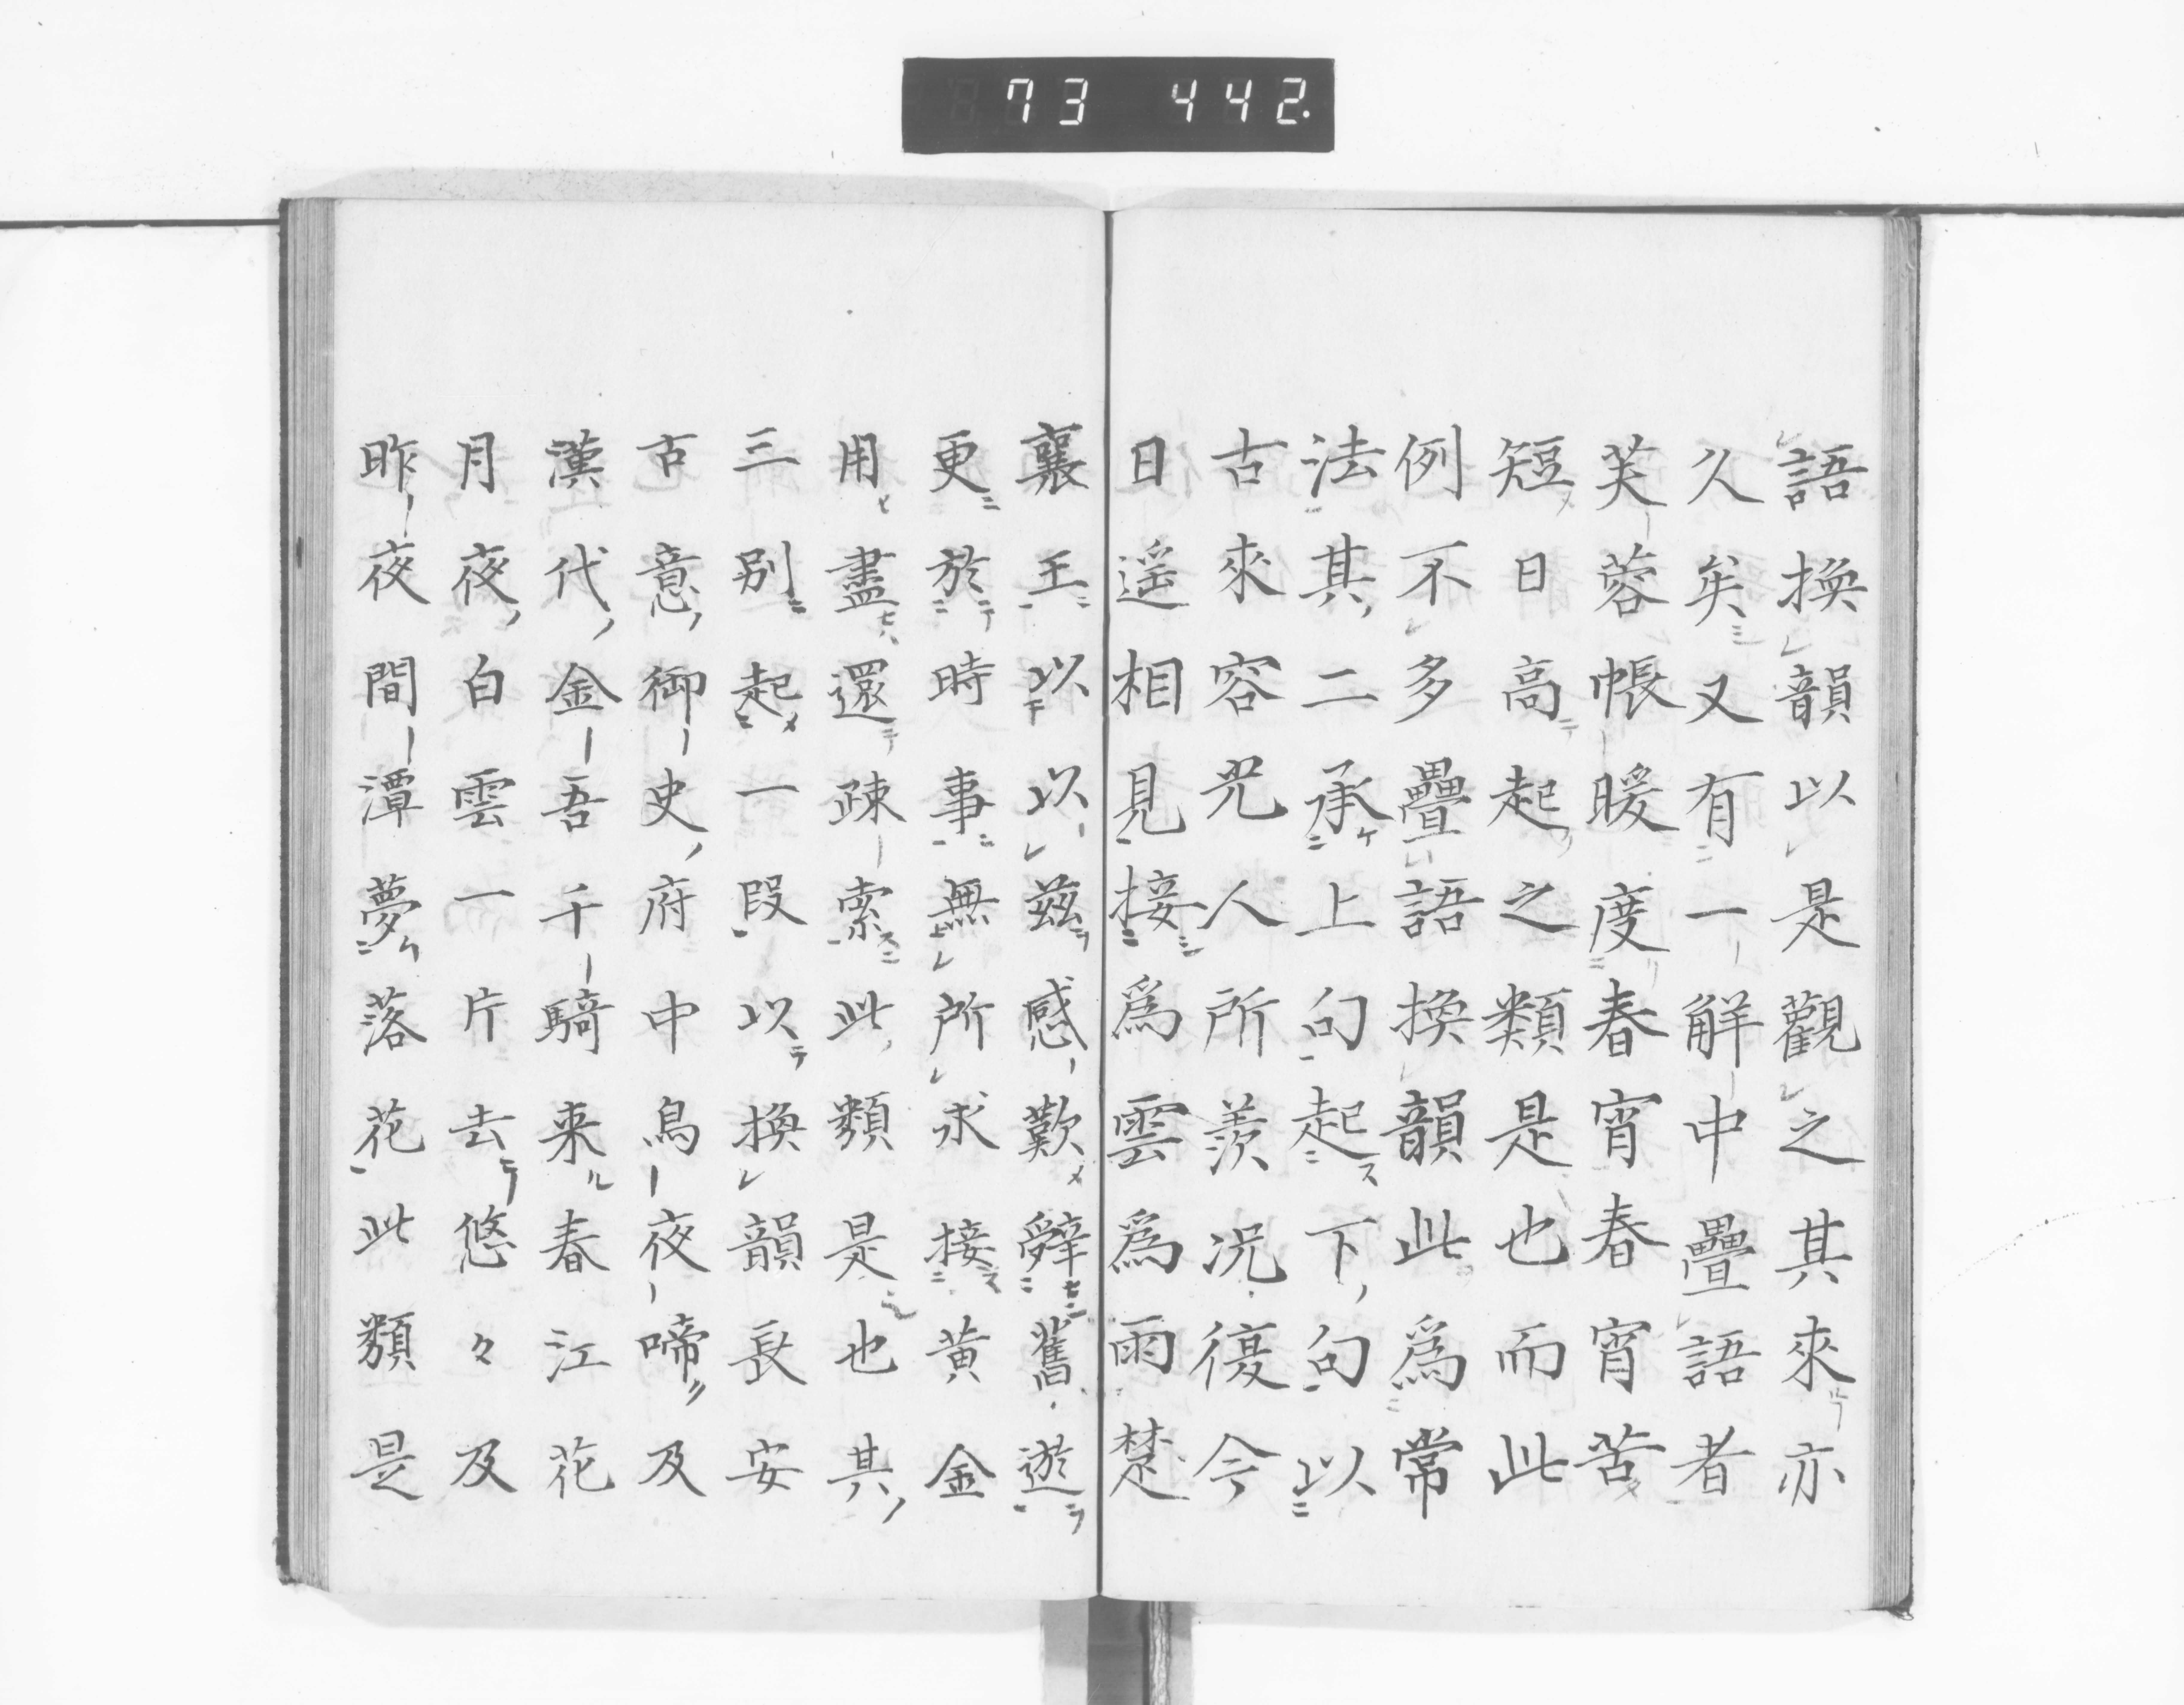 73 442.
語換韻以是觀之其來亦
久矣又有一解中疊語者
芙蓉帳暖度春宵春宵苦
短日高起之類是也而此
例不多疊語換韻此爲常
法其二承上句起下句以
古來容光人所羨况復今
日遥相見接爲雲爲雨楚
襄王以以兹感歎舜舊遊
更於時事無所求接黄金
用盡還疎索此類是也其
三別起一段以換韻長安
古意御史府中烏夜啼及
漢代金吾千騎来春江花
月夜白雲一片去悠々及
昨夜間潭夢落花此類是